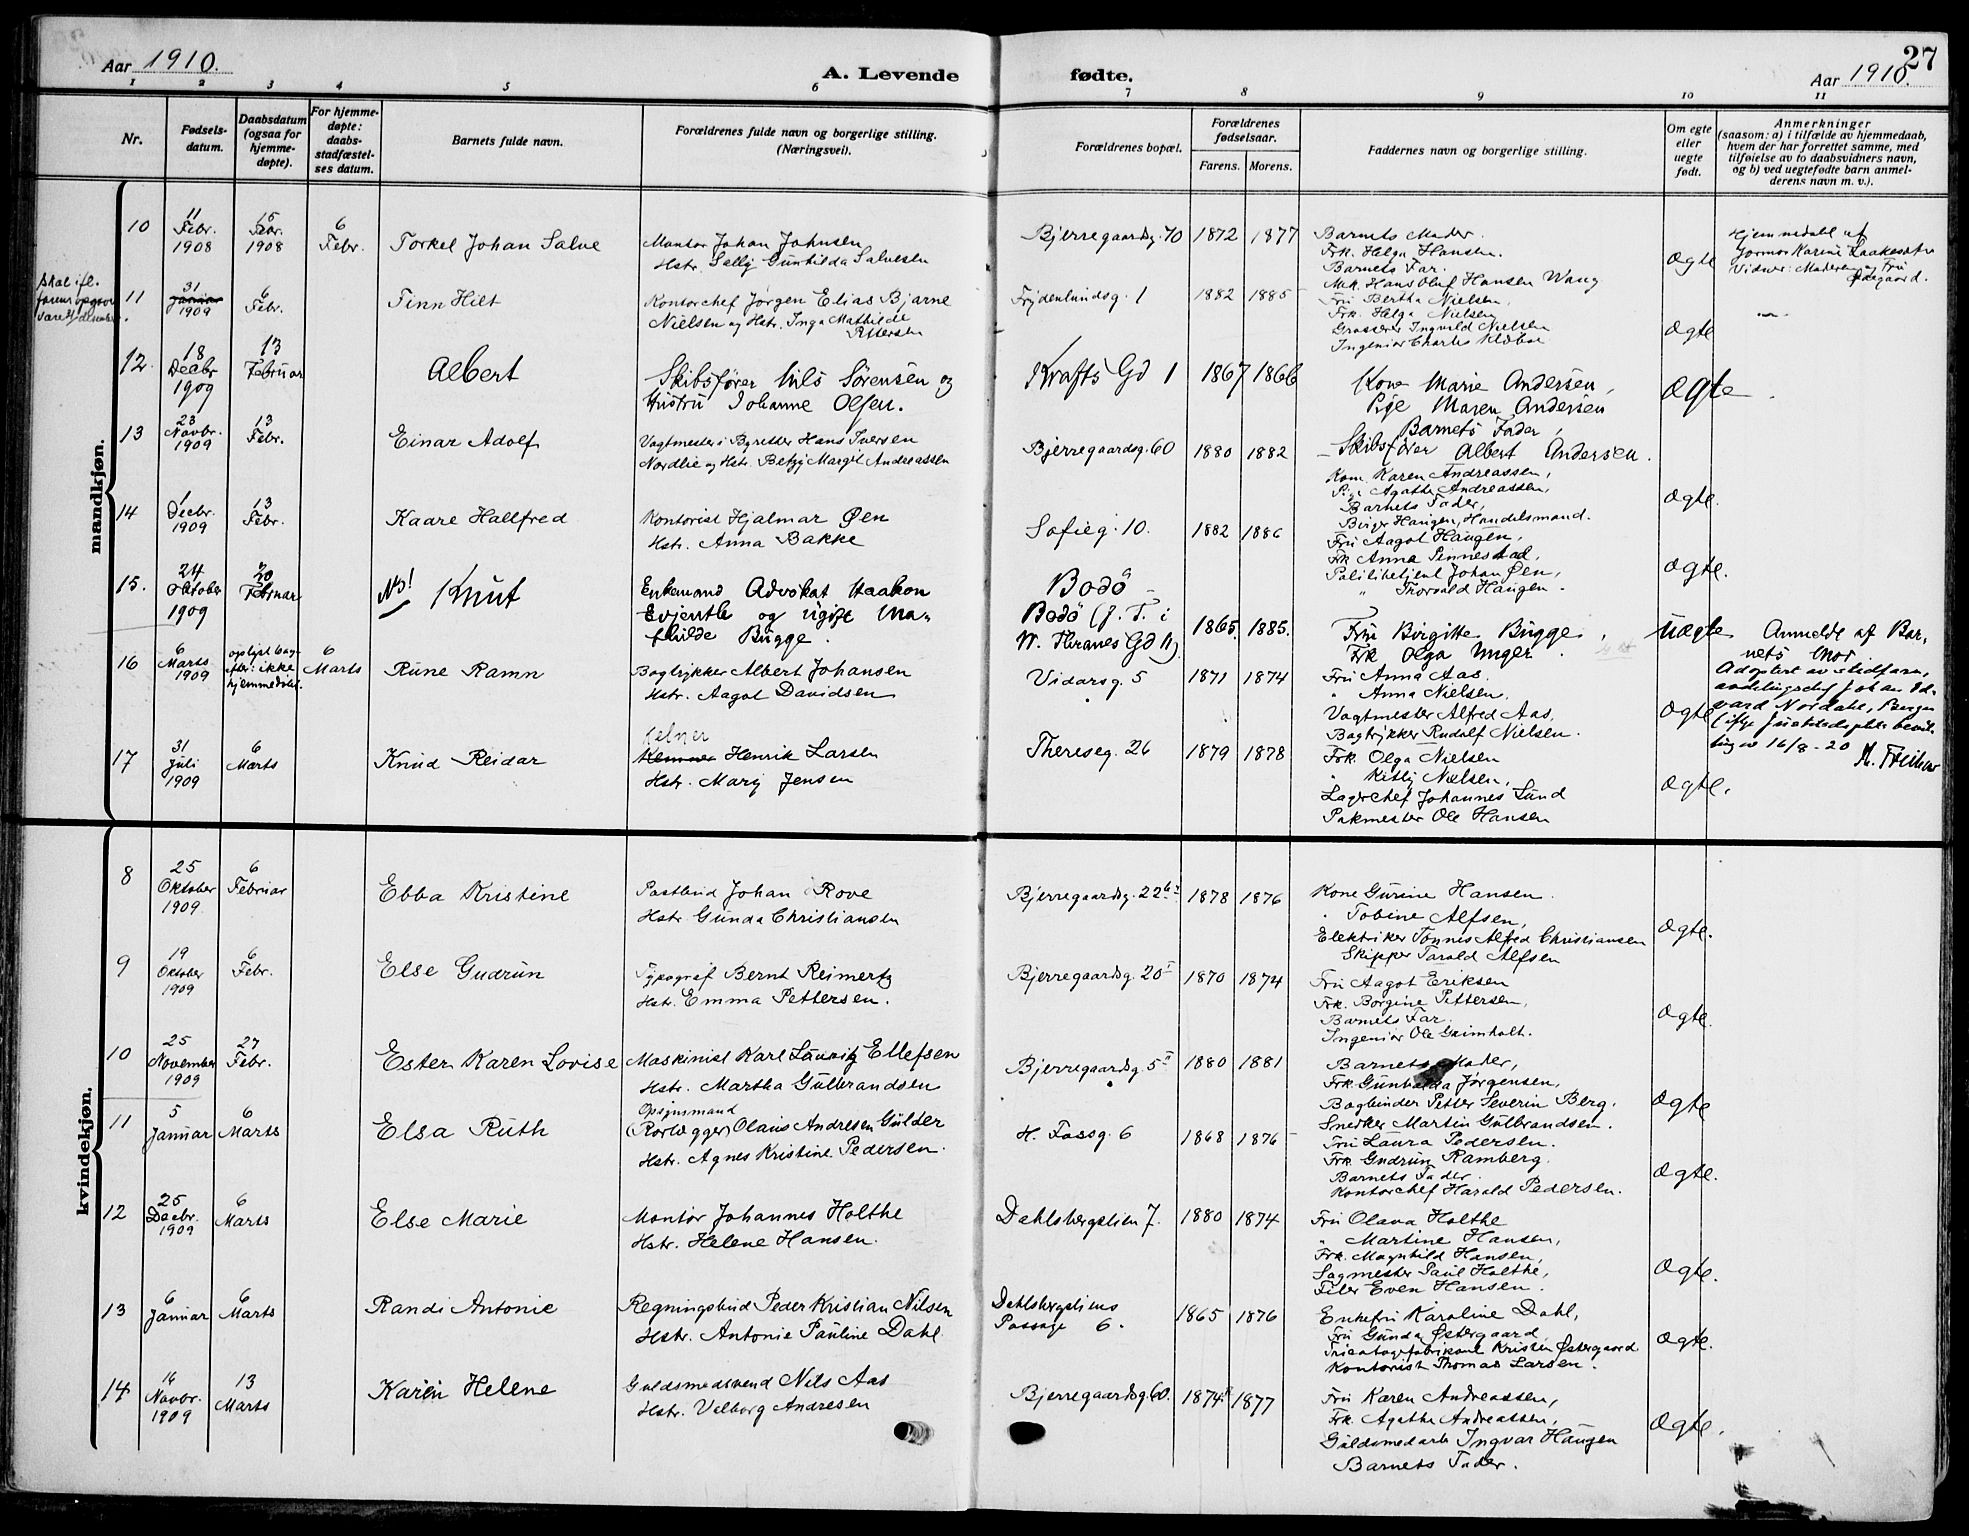 Aar 1910.
A. Levende fødte.
Aar 1910.
27
1 2 3 4 5 6 7 8 9 10 11
Nr.
Fødsels-
datum.
Daabsdatum
(ogsaa for
hjemme-
døpte).
For hjemme-
døpte:
daabs-
stadfæstel-
ses datum.
Barnets fulde navn.
Forældrenes fulde navn og borgerlige stilling.
(Næringsvei).
Forældrenes bopæl.
Forældrenes
fødselsaar.
Farens. Morens.
Faddernes navn og borgerlige stilling.
Om egte
eller
uegte
født.
Anmerkninger
(saasom: a) i tilfælde av hjemmedaab,
hvem der har forrettet samme, med
tilføielse av to daabsvidners navn,
og b) ved uegtefødte barn anmel-
derens navn m. v.).
mandkjøn.
10
11
Febr.
1908
15
Febr.
1908
6
Febr.
Torkel Johan Salve
Montør Johan Johnsen
Hstr. Sally Gunhilda Salvesen
Bjerregaardsg. 70
1872 1877
Barnets Moder.
Frk. Helga Hansen.
Barnets Far.
Mek. Hans Oluf Hansen Wang
Ægte
Hjemmedøbt af
Jormor Karine
Vidner: Moderen og Fru
Ødegaard.
Skal ifl.
11
31
Januar
1909
6
Febr.
Finn Hilt
Kontorchef Jørgen Elias Bjarne
Nielsen og Hstr. Inga Mathilde
Pettersen
Frydenlundsg. 1
1882 1885
Fru Bertha Nielsen,
Frk. Helga Nielsen
Grosserer Ingvald Nielsen
Ingeniør Charles
Ægte
12.
18
Decbr
1909
13
Februar
Albert
Skibsfører Nils Sörensen og
Hustru Johanne Olsen.
Krafts Gd 1
1867 1866
Kone Marie Andersen,
Pige Maren Andersen
Barnets Fader,
Skibsfører Albert Andersen.
Ægte
13
23
Novbr.
1909
13
Febr.
Einar Adolf
Vagtmester i Byretten Hans Iversen
Nordlie og Hstr. Betzy Margit Andreassen
Bjerregaardsg. 60
1880 1882
Kone Karen Andreassen,
Pige Agathe Andreassen,
Barnets Fader,
Birger Haugen, Handelsmand.
Ægte.
14
1
Decbr.
1909
13
Febr.
Kaare Hallfred
Kontorist Hjalmar Øen
Hstr. Anna Bakke
Sofieg. 10.
1882 1886
Fru Aagot Haugen,
Frk Anna Pinnestad,
Politibetjent Johan Øen,
" Thorvald Haugen.
Ægte.
15.
24
Oktober
1909
20
Februar
NB! Knut
Enkemand Advokat Haakon
Evjenth og ugift Ma-
thilde Bugge.
Bodö
Bodö (f. T. i
W. Thranes Gd 11)
1865. 1885.
Fru Birgitte Bugge,
Frk Olga Unger.
Uægte
Anmeldt af Bar-
nets Mor
Adoptert av stedfaren,
avdelingschef Johan Ed-
vard Nordahl, Bergen
(ifge Justitsdepts bevil-
ling av 16/8-20
16
6
Marts
1909
oplyst bag-
efter: ikke
hjemmedøbt.
6
Marts
Rune Ramn
Bogtrykker Albert Johansen
Hstr. Aagot Davidsen
Vidarsg. 5
1871 1874
Fru Anna Aas.
" Anna Nielsen.
Vagtmester Alfred Aas,
Bogtrykker Rudolf Nielsen.
Ægte
17
31
Juli
1909
6
Marts
Knud Reidar
Kelner
Henrik Larsen
Hstr. Mary Jensen
Thereseg. 26
1879 1878
Frk. Olga Nielsen
" Kitty Nielsen,
Lagerchef Johannes Lund
Pakmester Ole Hansen
Ægte.
kvindekjøn.
8
25
Oktober
1909
6
Februar
Ebba Kristine
Postbud Johan Rove
Hstr. Gunda Christiansen
Bjerregaardsg. 22
1878 1876
Kone Gurine Hansen.
" Tobine Alfsen,
Elektriker Tønnes Alfred Christiansen
Skipper Tarald Alfsen
Ægte.
9
19
Oktober
1909
6
Febr.
Else Gudrun
Typograf Bernt Reimertz
Hstr. Emma Pettersen.
Bjerregaardsg. 20 I
1870 1874
Fru Aagot Eriksen
Frk. Borgine Pettersen,
Barnets Far.
Ingeniør Ole Grimholt.
Ægte.
10
25
November
1909
27
Febr.
Ester Karen Lovise
Maskinist Karl Lauritz Ellefsen
Hstr. Martha Gulbrandsen
Bjerregaardsg. 5 I
1880 1881
Barnets Moder,
Frk. Gunhilda Jørgensen,
Bogbinder Petter Severin Berg.
Snedker Martin Gulbrandsen.
Ægte
11
5
Januar
6
Marts
Elsa Ruth
Opsynsmand
(Rørlægger) Olaus Andresen Gulder
Hstr. Agnes Kristine Pedersen.
H. Fossg. 6
1868 1876
Fru Laura Pedersen.
Frk. Gudrun Ramberg.
Barnets Fader.
Kontorchef Harald Pedersen.
Ægte.
12
25
Decbr.
1909
6
Marts
Else Marie
Montør Johannes Holthe
Hstr. Helene Hansen.
Dahlsbergstien 7.
1880 1874
Fru Olava Holthe
" Martine Hansen,
Frk. Magnhild Hansen,
Sagmester Paul Holthe,
Filer Even Hansen.
Ægte.
13
6
Januar
6
Marts
Randi Antonie
Regningsbud Peder Kristian Nilsen
Hstr. Antonie Pauline Dahl
Dahlsbergstiens
Passage 6.
1865 1876
Enkefru Karoline Dahl,
Fru Gunda Østergaard,
Tricotagefabrikant Kristen Østergaard
Kontorist Thomas Larsen.
Ægte.
14
14
Novbr.
1909
13
Marts
Karen Helene
Guldsmedsvend Nils Aas
Hstr. Valborg Andresen
Bjerregaardsg. 60.
1874 1877
Fru Karen Andreassen,
Frk. Agathe Andreassen,
Guldsmedarb Ingvar Haugen
Barnets Fader.
Ægte.